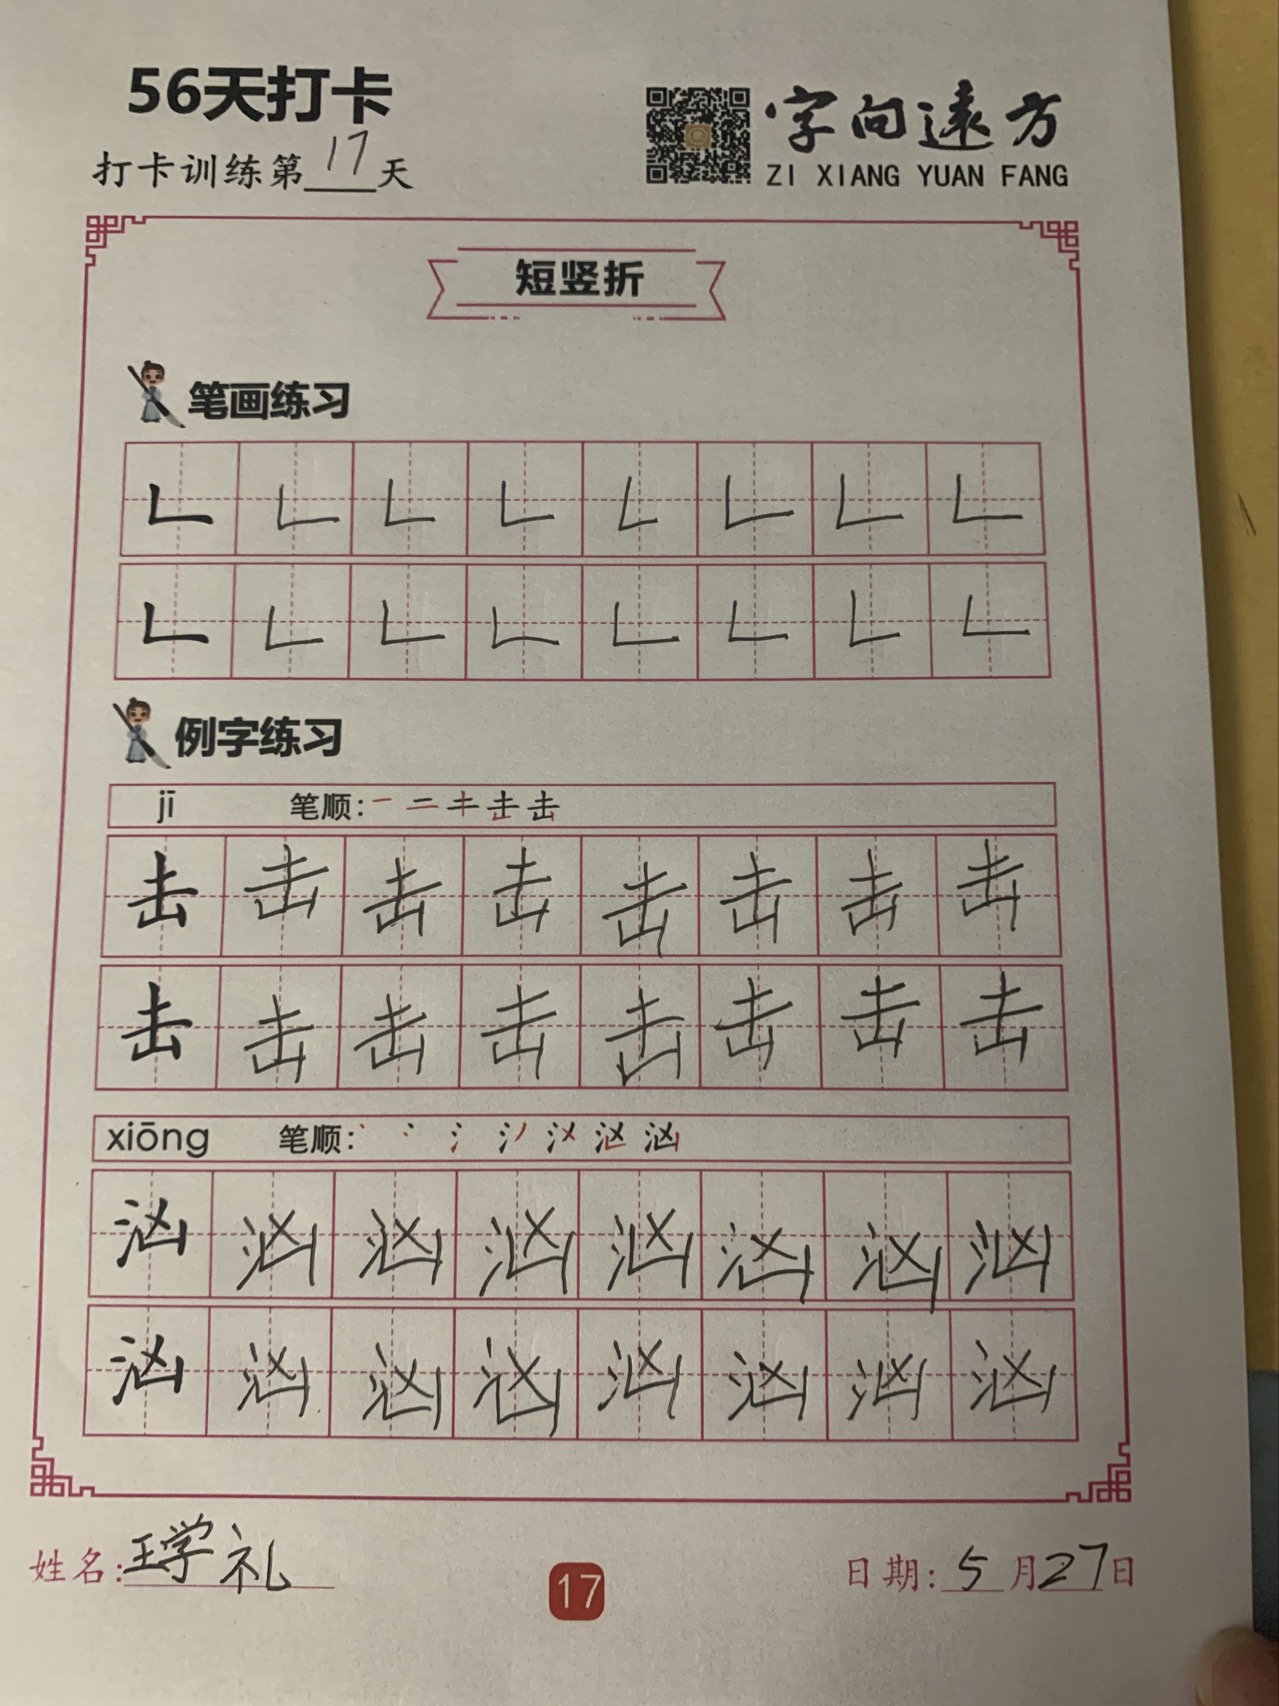 56天打卡
打卡训练第17天
字向远方
ZI XIANG YUAN FANG
短竖折
笔画练习
𠃊 𠃊 𠃊 𠃊 𠃊 𠃊 𠃊 𠃊
𠃊 𠃊 𠃊 𠃊 𠃊 𠃊 𠃊 𠃊
例字练习
jī 笔顺: 一 二 キ 击 击
击 击 击 击 击 击 击 击
击 击 击 击 击 击 击 击
xiōng 笔顺:
汹 汹 汹 汹 汹 汹 汹 汹
汹 汹 汹 汹 汹 汹 汹 汹
姓名:王学礼
17
日期:5月27日